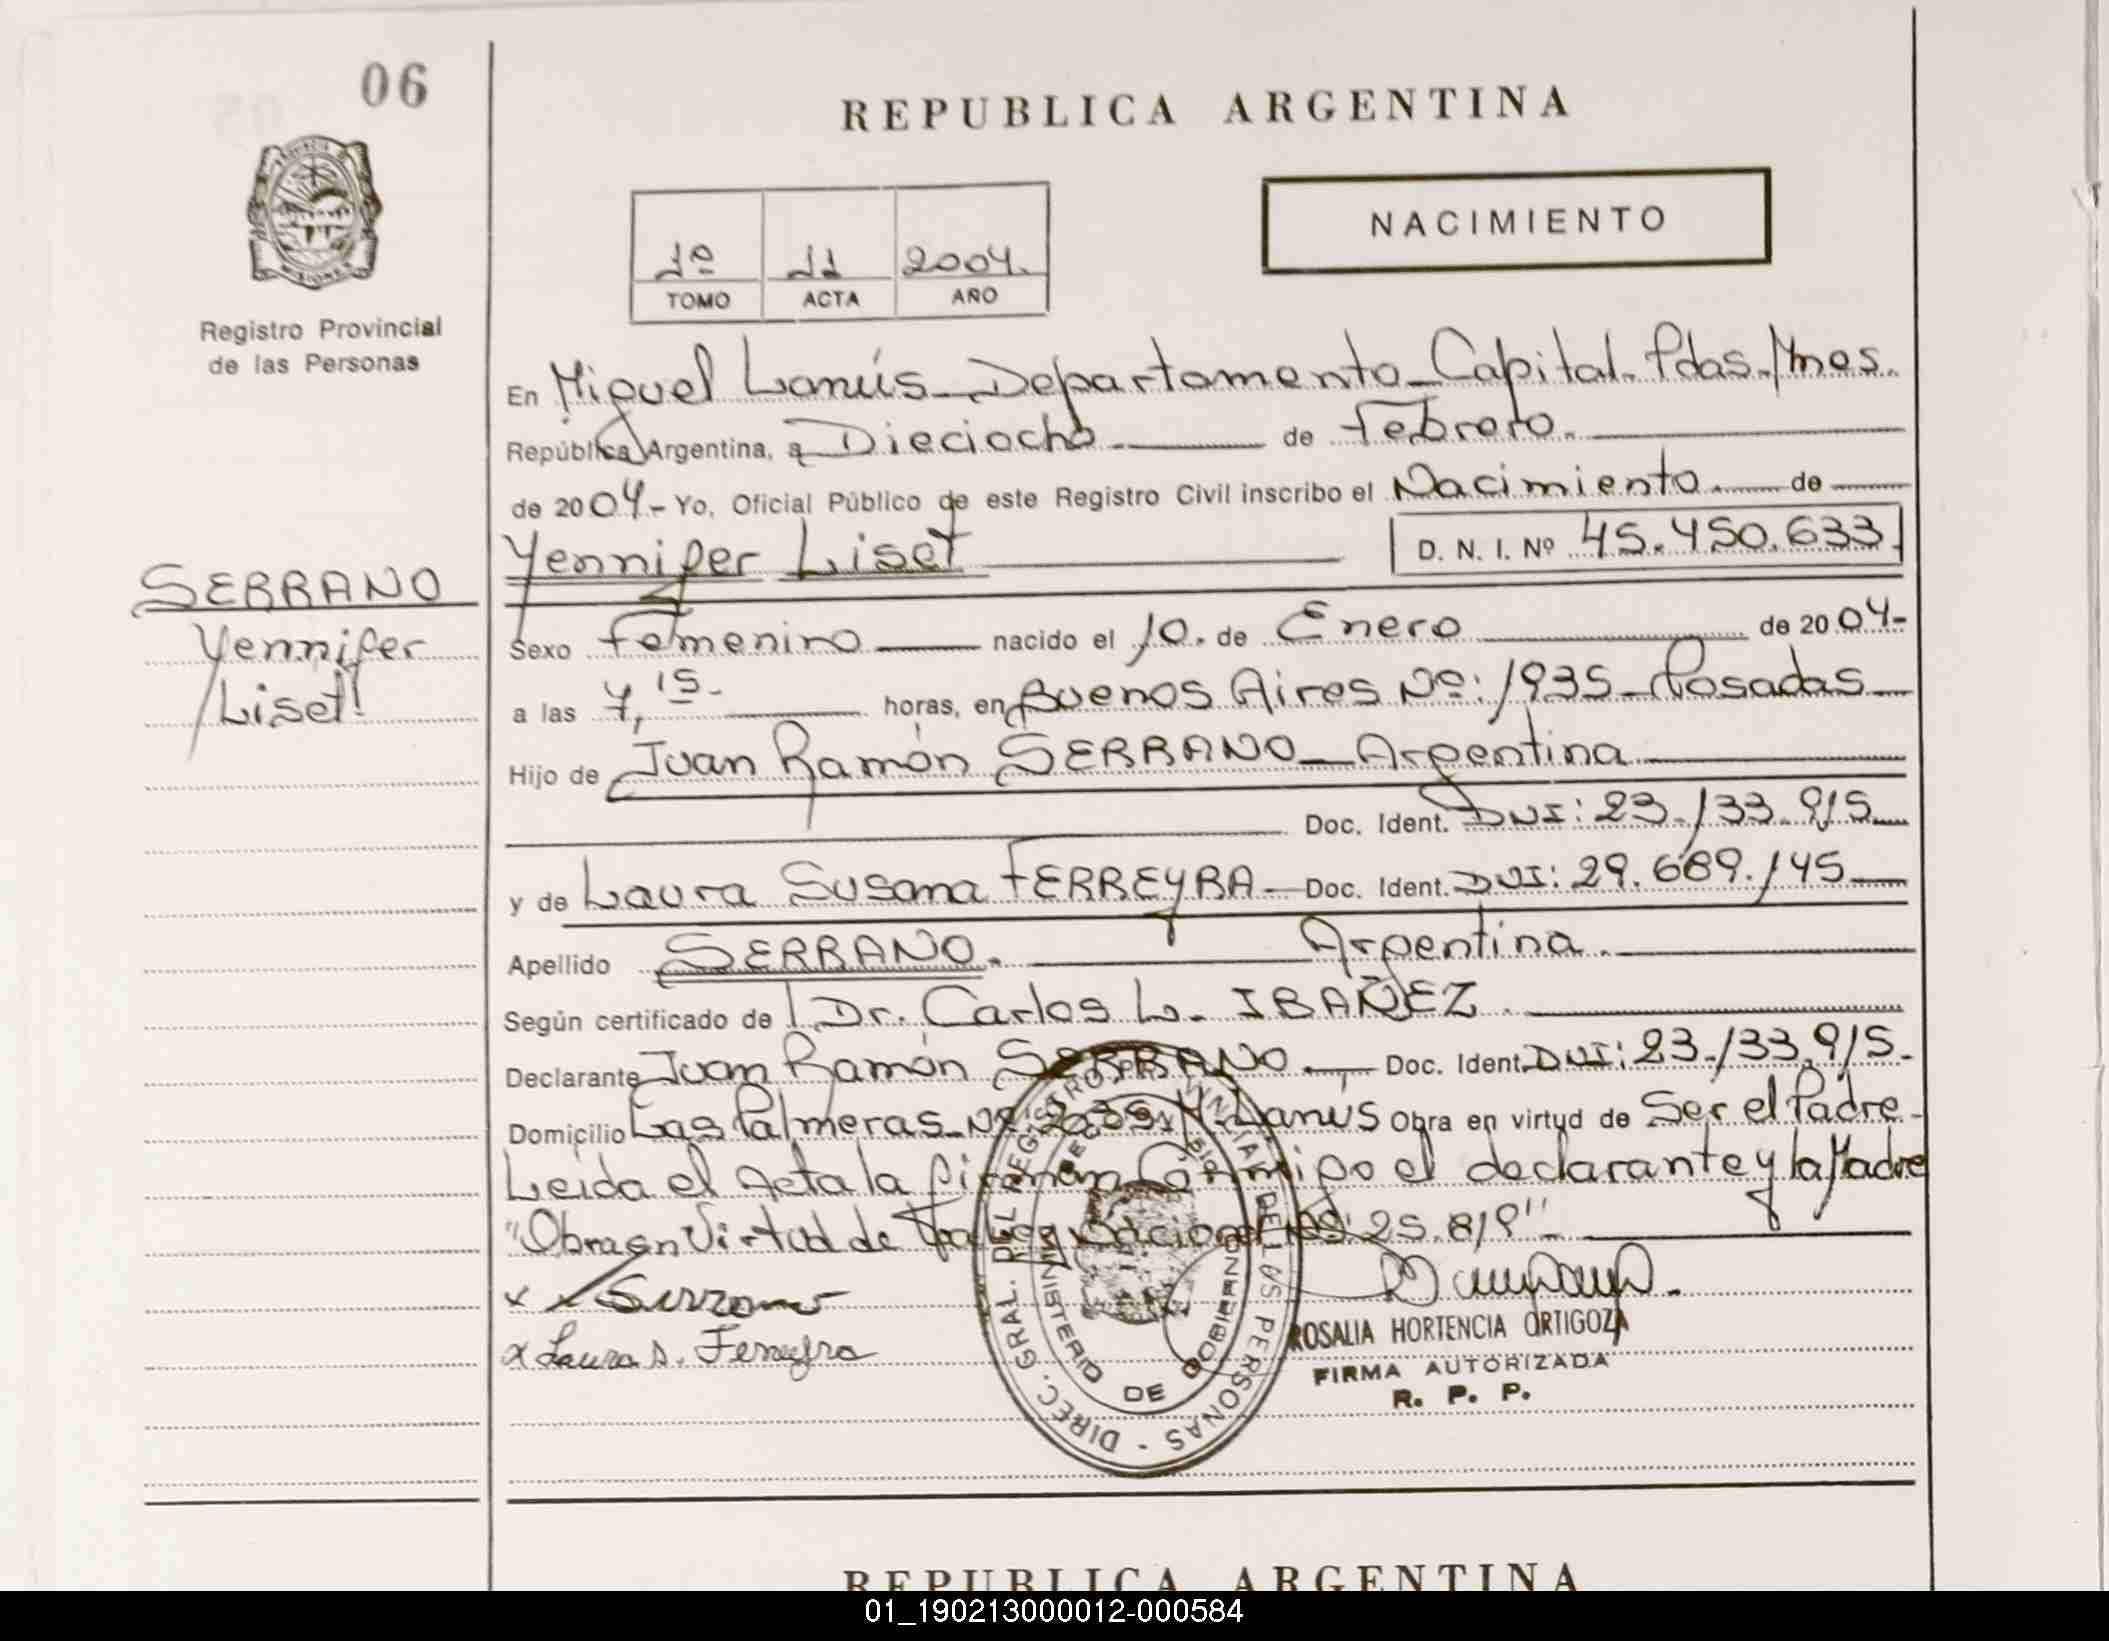 06
REPUBLICA ARGENTINA
NACIMIENTO
1º 11 2004.
TOMO ACTA AÑO
PROVINCIA
MISIONES
Registro Provincial
de las Personas
En Miguel Lanús - Departamento - Capital - Pdas. Mnes.
República Argentina, a Dieciocho de Febrero.
de 2004 - Yo, Oficial Público de este Registro Civil inscribo el Nacimiento de
Yennifer Liset D. N. I. Nº 45.450.633
SERRANO
Yennifer
Liset
Sexo Femenino nacido el 10. de Enero de 2004-
a las 7,15- horas, en Buenos Aires Nº: 1935 - Posadas
Hijo de Juan Ramón SERRANO - Argentina
Doc. Ident. DNI: 23.133.915
y de Laura Susana FERREYRA - Doc. Ident. DNI: 29.689.145
Apellido SERRANO. Argentina.
Según certificado de Dr. Carlos L. IBAÑEZ
Declarante Juan Ramón SERRANO Doc. Ident. DNI: 23.133.915.
Domicilio Las Palmeras - Nº Lanús Obra en virtud de Ser el Padre -
Leida el Acta la firman Conmigo el declarante y la Madre
"Obra en Virtud de Ley Nacional Nº 25.819"
x Serrano
x Laura S. Ferreyra
ROSALIA HORTENCIA ORTIGOZA
FIRMA AUTORIZADA
R. P. P.
DIREC. GRAL. DEL REGISTRO PROVINCIAL DE LOS PERSONAS -
MINISTERIO DE GOBIERNO
REPUBLICA ARGENTINA
01_190213000012-000584